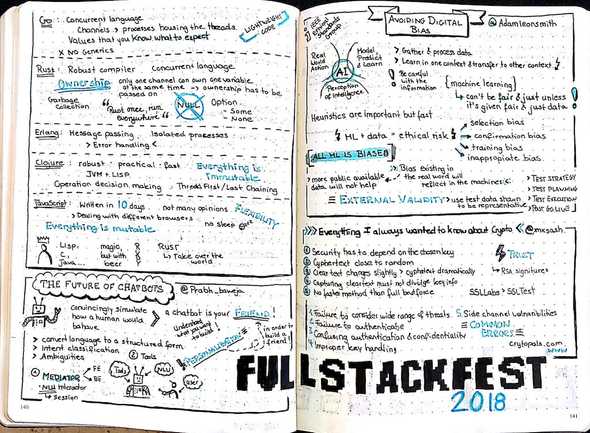 Go : . Concurrent language
Channels > processes housing the threads
Values that you know what to expect
x NO Generics
LIGHTWEIGHT
CODE
Rust : Robust compiler Concurrent language
OWNERSHIP only one channel can own one variable
at the same time → ownership has to be
passed on
Garbage
collection
"Rust once, run
everywhere"
NULL
Option
- Some
- None
Erlang : Message passing . Isolated processes
> Error handling <
Clojure : robust · practical · fast
JVM + LISP
Everything is
immutable
Operation decision making · Thread First / Last Chaining
JavaScript : Written in 10 days · not many opinions
FLEXIBILITY
> Dealing with different browsers
no sleep
Everything is mutable
. Lisp.
C,
Java...
magic,
but with
beer
R RUST
↳ Take over the
world
THE FUTURE OF CHATBOTS
@Prabh_baweja
convincingly simulate
how a human would
behave
a chatbot is your FRIEND!
> convert language to a structured form
> Intent classification
> Ambiguities
Tools
in order to
build a
friend!
MEDIATOR
FE
BE
· NLU Interactor
↳ Session
Tools
NLU
User
140
AVOIDING DIGITAL
BIAS
@Adamleonsmith
IEEE
Real
World
Action
Model,
Predict
& Learn
AI
Perception
of intelligence
> Gather & process data
> Learn in one context & transfer to other context
Be careful
with the
information
{machine learning}
↳ can't be fair & just unless
it's given fair & just data
Heuristics are important but fast
HML + data = ethical risk
→ selection bias
→ confirmation bias
→ training bias
→ inappropiate bias
ALL ML IS BIASED
> more public available
data will not help
>> Bias existing in
the real word will
reflect in the machines
≡ EXTERNAL VALIDITY: use test data shown
to be representative
> TEST STRATEGY
> TEST PLANNING
> TEST EXECUTION
> POST GO LIVE
>>> Everything I always wanted to know about Crypto
① Security has to depend on the chosen key
② Cyphertext close to random
③ Clear text changes slightly > cyphertext dramatically
④ Capturing cleartext must not divulge key info
⑤ No faster method than full bruteforce
TRUST
↳ RSA signatures
SSLLabs > SSLTest
1. Failure to consider wide range of threats
2. Failure to authenticate
3. Confusing authentication & confidentiality
4. Improper key handling
5. Side channel vulnerabilities
≡ COMMON
ERRORS ≡
cryptopals.com
FULLSTACKFEST
2018
141